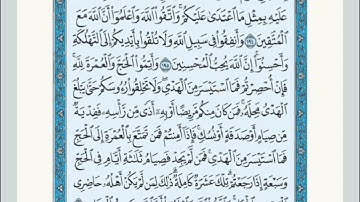 عَلَيْهِ بِمِثْلِ مَا ٱعْتَدَىٰ عَلَيْكُمْ ۚ وَٱتَّقُوا۟ ٱللَّهَ وَٱعْلَمُوٓا۟ أَنَّ ٱللَّهَ مَعَ
ٱلْمُتَّقِينَ ١٩٤ وَأَنفِقُوا۟ فِى سَبِيلِ ٱللَّهِ وَلَا تُلْقُوا۟ بِأَيْدِيكُمْ إِلَى ٱلتَّهْلُكَةِ ۛ
وَأَحْسِنُوٓا۟ ۛ إِنَّ ٱللَّهَ يُحِبُّ ٱلْمُحْسِنِينَ ١٩٥ وَأَتِمُّوا۟ ٱلْحَجَّ وَٱلْعُمْرَةَ لِلَّهِ ۚ
فَإِنْ أُحْصِرْتُمْ فَمَا ٱسْتَيْسَرَ مِنَ ٱلْهَدْىِ ۖ وَلَا تَحْلِقُوا۟ رُءُوسَكُمْ حَتَّىٰ يَبْلُغَ
ٱلْهَدْىُ مَحِلَّهُۥ ۚ فَمَن كَانَ مِنكُم مَّرِيضًا أَوْ بِهِۦٓ أَذًى مِّن رَّأْسِهِۦ فَفِدْيَةٌ
مِّن صِيَامٍ أَوْ صَدَقَةٍ أَوْ نُسُكٍ ۚ فَإِذَآ أَمِنتُمْ فَمَن تَمَتَّعَ بِٱلْعُمْرَةِ إِلَى ٱلْحَجِّ
فَمَا ٱسْتَيْسَرَ مِنَ ٱلْهَدْىِ ۚ فَمَن لَّمْ يَجِدْ فَصِيَامُ ثَلَـٰثَةِ أَيَّامٍ فِى ٱلْحَجِّ
وَسَبْعَةٍ إِذَا رَجَعْتُمْ ۗ تِلْكَ عَشَرَةٌ كَامِلَةٌ ۗ ذَٰلِكَ لِمَن لَّمْ يَكُنْ أَهْلُهُۥ حَاضِرِى